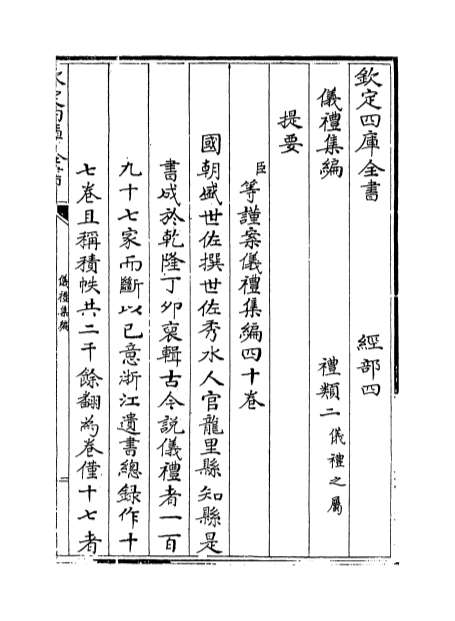 欽定四庫全書　經部四
儀禮集編　禮類二儀禮之屬
提要
臣等謹案儀禮集編四十卷
國朝盛世佐撰世佐秀水人官龍里縣知縣是
書成於乾隆丁卯裒輯古今說儀禮者一百
九十七家而斷以己意浙江遺書總錄作十
七卷且稱積帙共二千餘翻為卷僅十七者
欽定四庫全書
儀禮集編